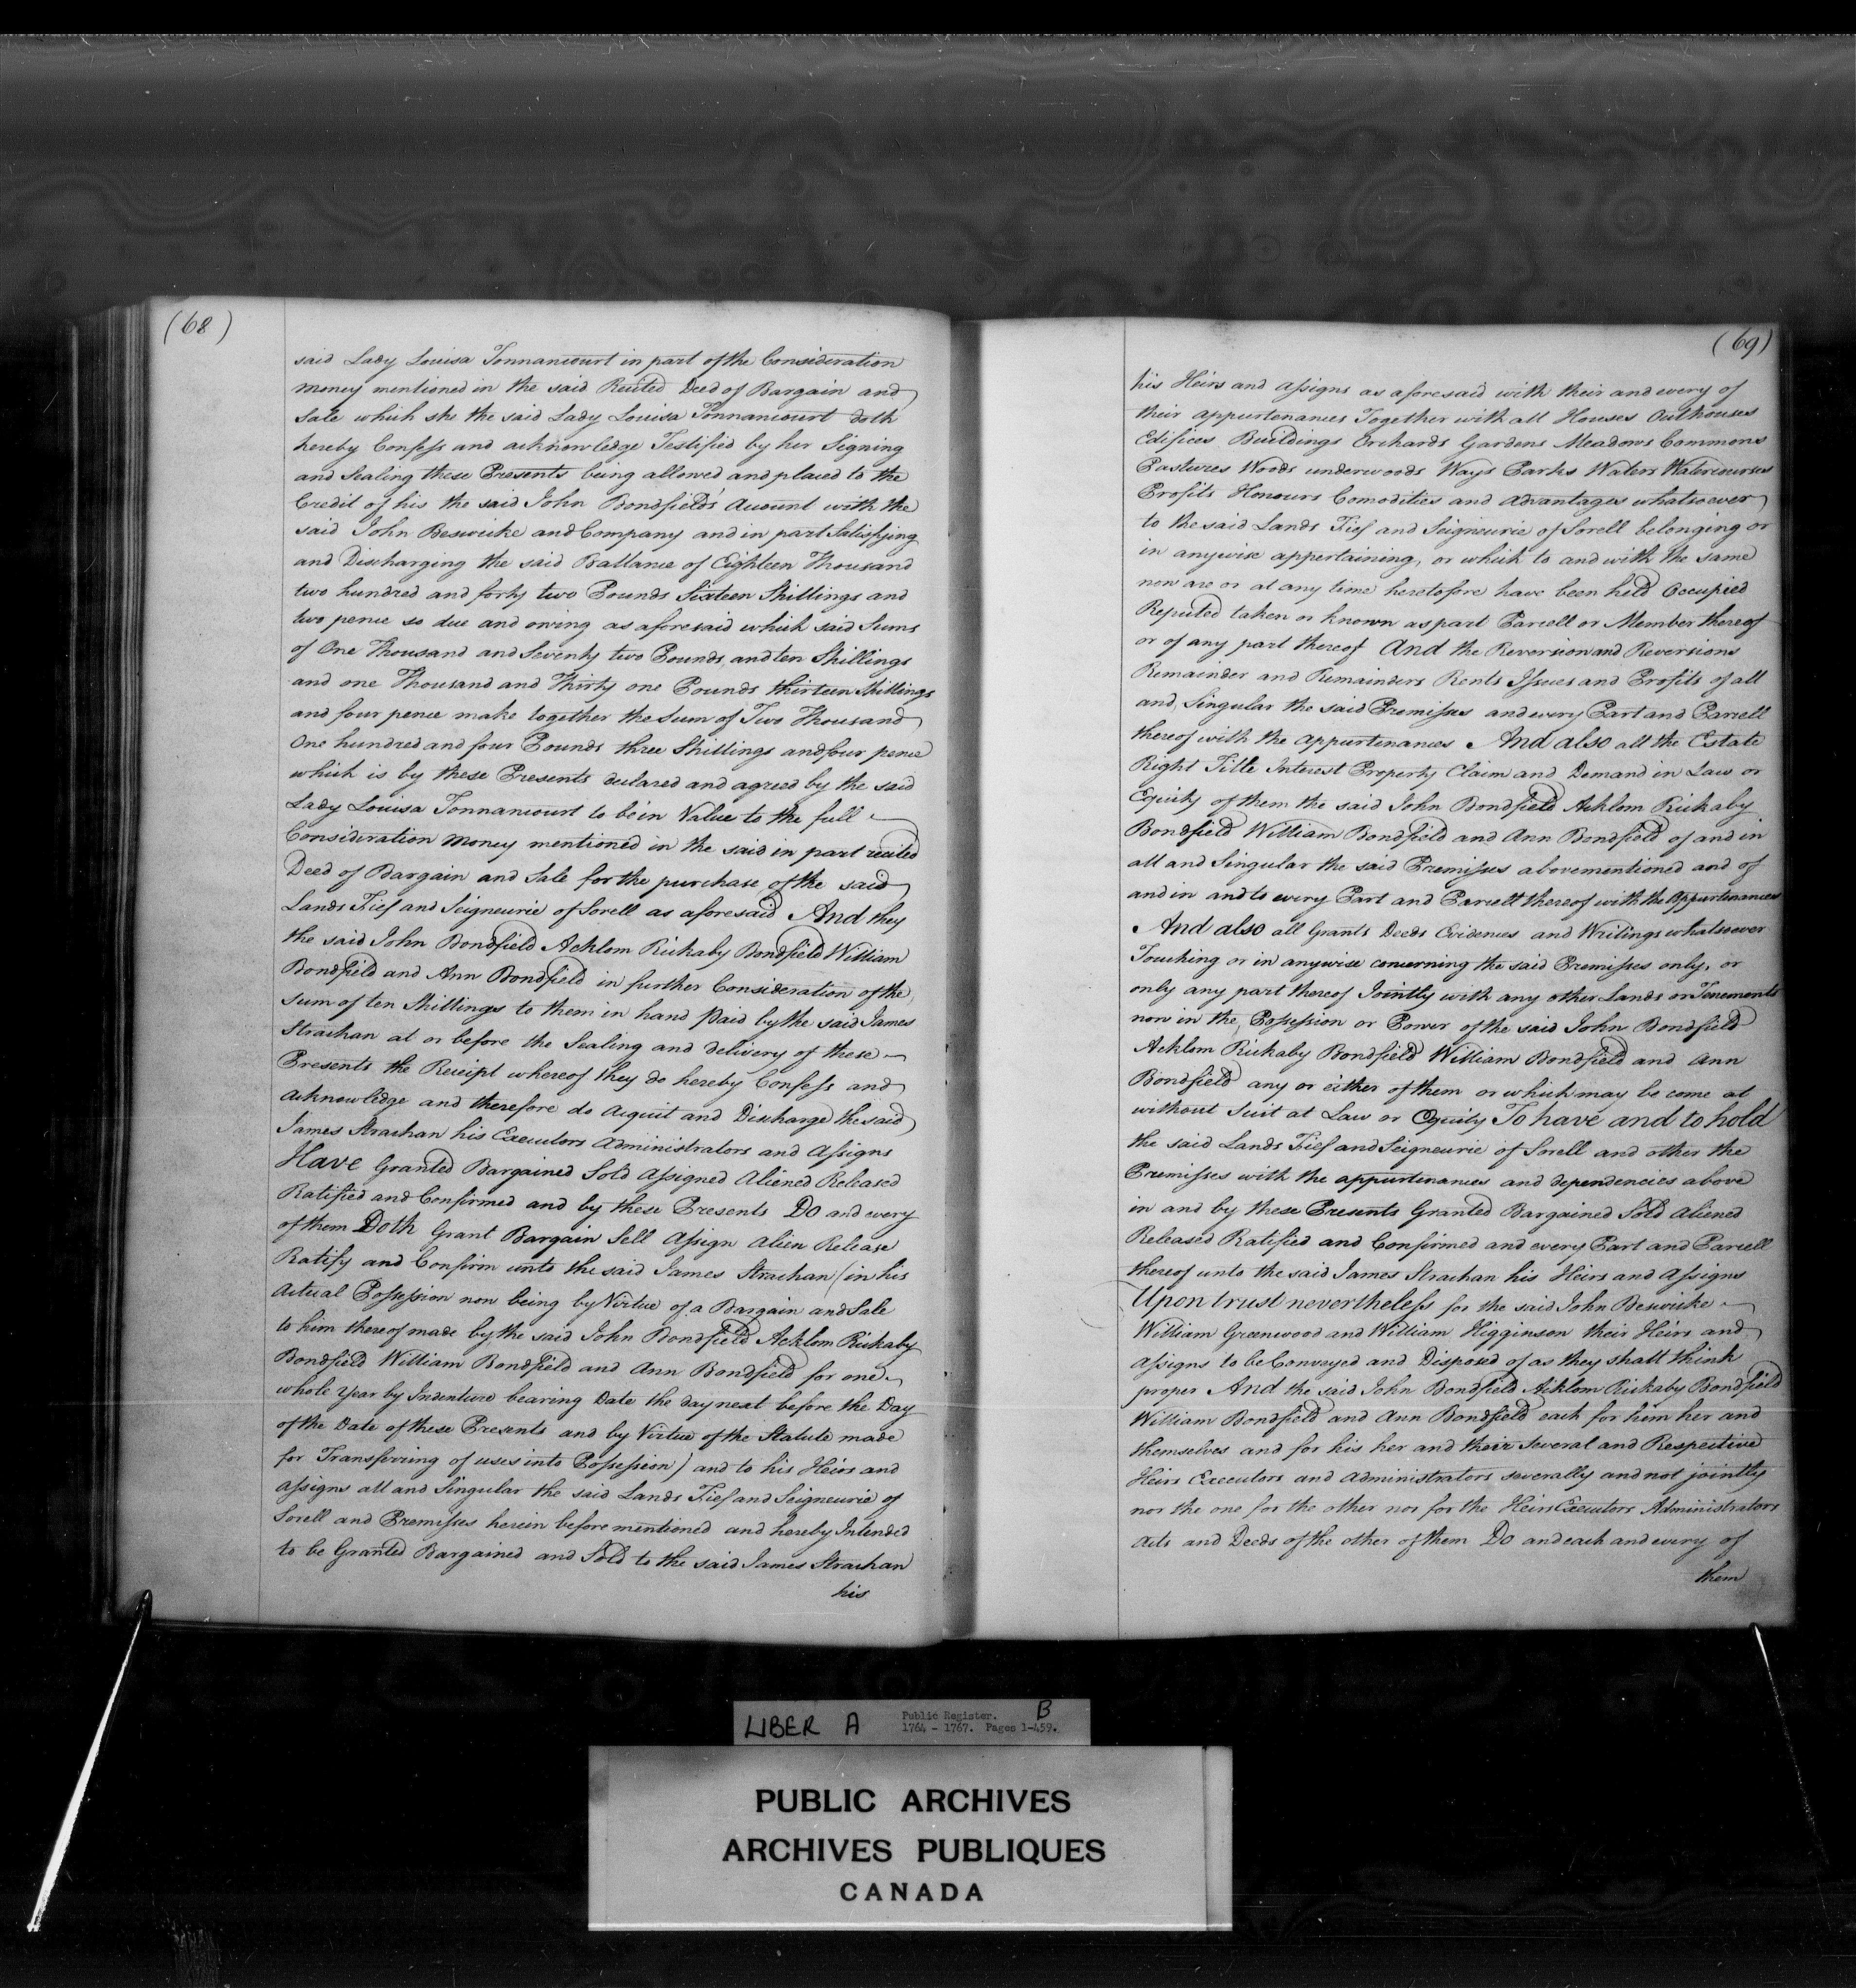 (68)
said Lady Louisa Tonnancourt in part of the Consideration
money mentioned in the said Recited Deed of Bargain and
Sale which she the said Lady Louisa Tonnancourt doth
hereby Confess and acknowledge Testified by her Signing
and Sealing these Presents being allowed and placed to the
Credit of his the said John Bondfield's Account with the
said John Beswicke and Company and in part Satisfying
and Discharging the said Ballance of Eighteen Thousand
two hundred and forty two Pounds Sixteen Shillings and
two pence so due and owing as aforesaid which said Sums
of One Thousand and Seventy two Pounds and ten Shillings
and one Thousand and Thirty one Pounds thirteen Shillings
and four pence make together the Sum of Two Thousand
One hundred and four Pounds three Shillings and four pence
which is by these Presents declared and agreed by the said
Lady Louisa Tonnancourt to be in Value to the full
Consideration money mentioned in the said in part recited
Deed of Bargain and Sale for the purchase of the said
Lands Fief and Seigneurie of Sorell as aforesaid And they
the said John Bondfield Acklom Rickaby Bondfield William
Bondfield and Ann Bondfield in further Consideration of the
Sum of ten Shillings to them in hand Paid by the said James
Strachan at or before the Sealing and delivery of these
Presents the Receipt whereof they do hereby Confess and
acknowledge and therefore do Acquit and Discharge the said
James Strachan his Executors Administrators and Assigns
Have Granted Bargained Sold Assigned Aliened Released
Ratified and Confirmed and by these Presents Do and every
of them Doth Grant Bargain Sell Assign Alien Release
Ratify and Confirm unto the said James Strachan (in his
actual Possession now being by Virtue of a Bargain and Sale
to him thereof made by the said John Bondfield Acklom Rickaby
Bondfield William Bondfield and Ann Bondfield for one
whole Year by Indenture bearing Date the day next before the Day
of the Date of these Presents and by Virtue of the Statute made
for Transferring of uses into Possession) and to his Heirs and
Assigns all and Singular the said Lands Fief and Seigneurie of
Sorell and Premisses herein before mentioned and hereby Intended
to be Granted Bargained and Sold to the said James Strachan
his
(69)
his Heirs and Assigns as aforesaid with their and every of
their appurtenances Together with all Houses Outhouses
Edifices Buildings Orchards Gardens Meadows Commons
Pastures Woods underwoods Ways Parks Waters Watercourses
Profits Honours Comodities and advantages whatsoever
to the said Lands Fief and Seigneurie of Sorell belonging or
in anywise appertaining, or which to and with the same
now are or at any time heretofore have been held Occupied
Reputed taken or known as part Parcell or Member thereof
or of any part thereof And the Reversion and Reversions
Remainder and Remainders Rents Issues and Profits of all
and Singular the said Premisses and every Part and Parcell
thereof with the appurtenances And also all the Estate
Right Title Interest Property Claim and Demand in Law or
Equity of them the said John Bondfield Acklom Rickaby
Bondfield William Bondfield and Ann Bondfield of and in
all and Singular the said Premisses abovementioned and of
and in and to every Part and Parcell thereof with the Appurtenances
And also all Grants Deeds Evidences and Writings whatsoever
Touching or in anywise concerning the said Premisses only, or
only any part thereof Jointly with any other Lands or Tenements
now in the Possession or Power of the said John Bondfield
Acklom Rickaby Bondfield William Bondfield and Ann
Bondfield any or either of them or which may be come at
without Suit at Law or Equity To have and to hold
the said Lands Fief and Seigneurie of Sorell and other the
Premisses with the appurtenances and dependencies above
in and by these Presents Granted Bargained Sold aliened
Released Ratified and Confirmed and every Part and Parcell
thereof unto the said James Strachan his Heirs and Assigns
Upon trust nevertheless for the said John Beswicke
William Greenwood and William Higginson their Heirs and
Assigns to be Conveyed and Disposed of as they shall think
proper And the said John Bondfield Acklom Rickaby Bondfield
William Bondfield and Ann Bondfield each for him her and
themselves and for his her and their Several and Respective
Heirs Executors and Administrators severally and not jointly
nor the one for the other nor for the Heirs Executors Administrators
acts and Deeds of the other of them Do and each and every of
them
LIBER A Public Register. B
1764 - 1767. Pages 1-459.
PUBLIC ARCHIVES
ARCHIVES PUBLIQUES
CANADA